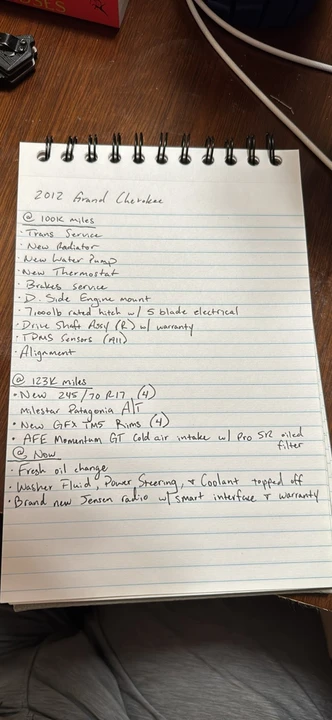 SSES
2012 Grand Cherokee
@ 100K miles
· Trans Service
· New Radiator
· New Water Pump
· New Thermostat
· Brakes service
· D. Side Engine mount
· 7,000lb rated hitch w/ 5 blade electrical
· Drive Shaft Assy (R) w/ warranty
· TPMS Sensors (All)
· Alignment
@ 123K miles
• New 245/70 R17 (4)
Milestar Patagonia A/T
• New GFX TM5 Rims (4)
• AFE Momentum GT Cold air intake w/ Pro 5R oiled
filter
@ Now
· Fresh oil change
· Washer Fluid, Power Steering, & Coolant topped off
· Brand new Jensen radio w/ smart interface & warranty